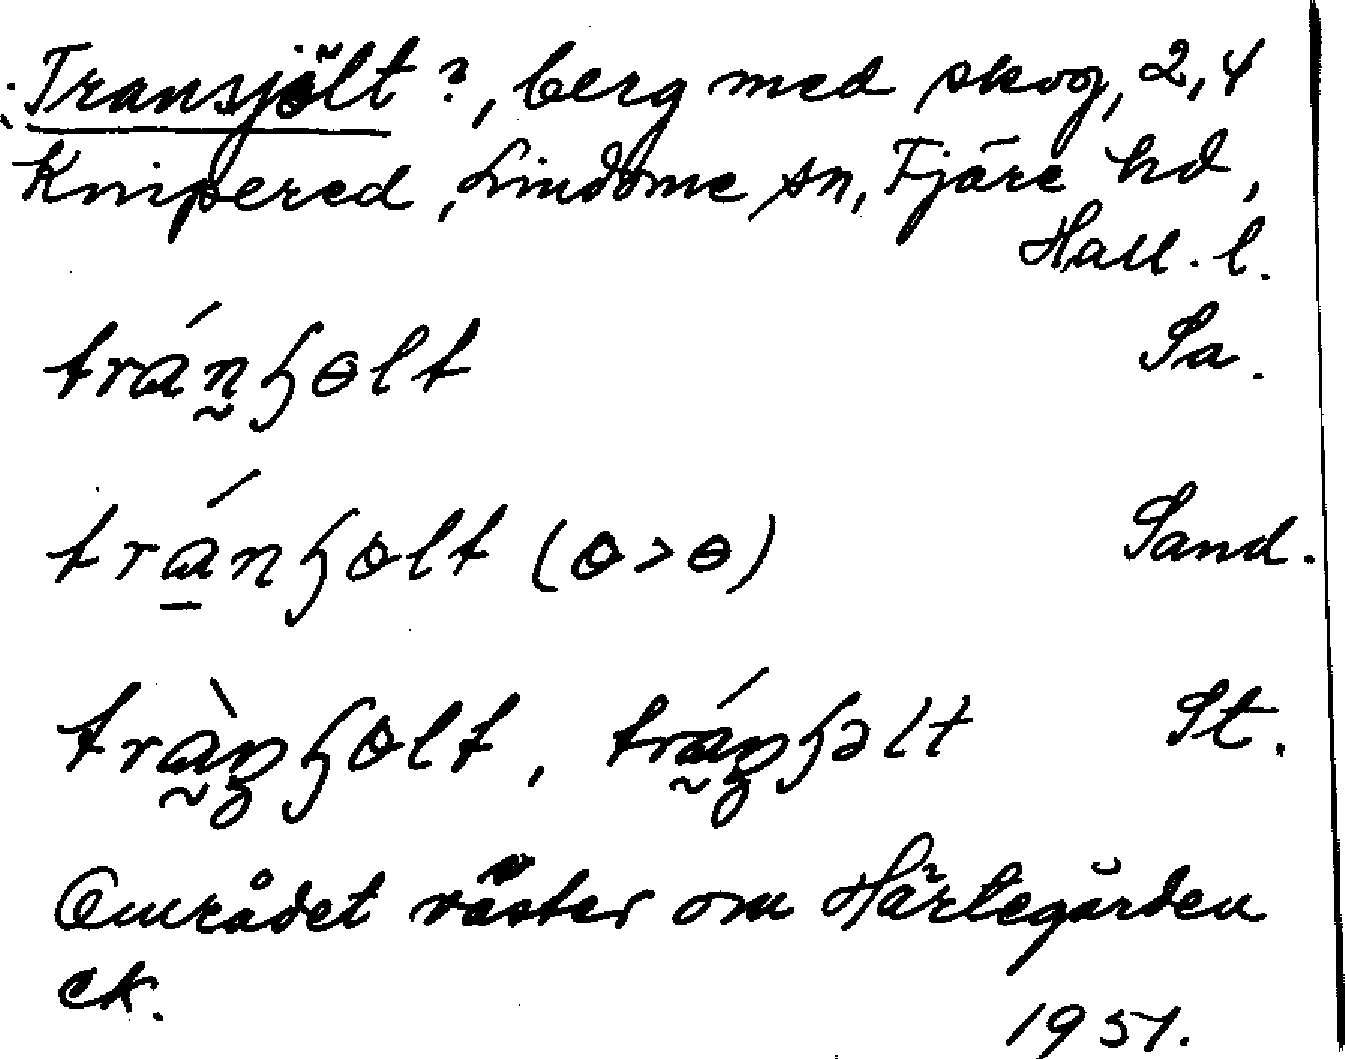 Transjölt?, berg med skog, 2,4
Knipered, Lindome sn, Fjäre hd,
Hall. l.
tránhɵlt Sa.
tránhɵlt (ɵ>ɵ) Sand.
trànhɵlt, tránhəlt St.
Området väster om Härlegården
ek.
1951.